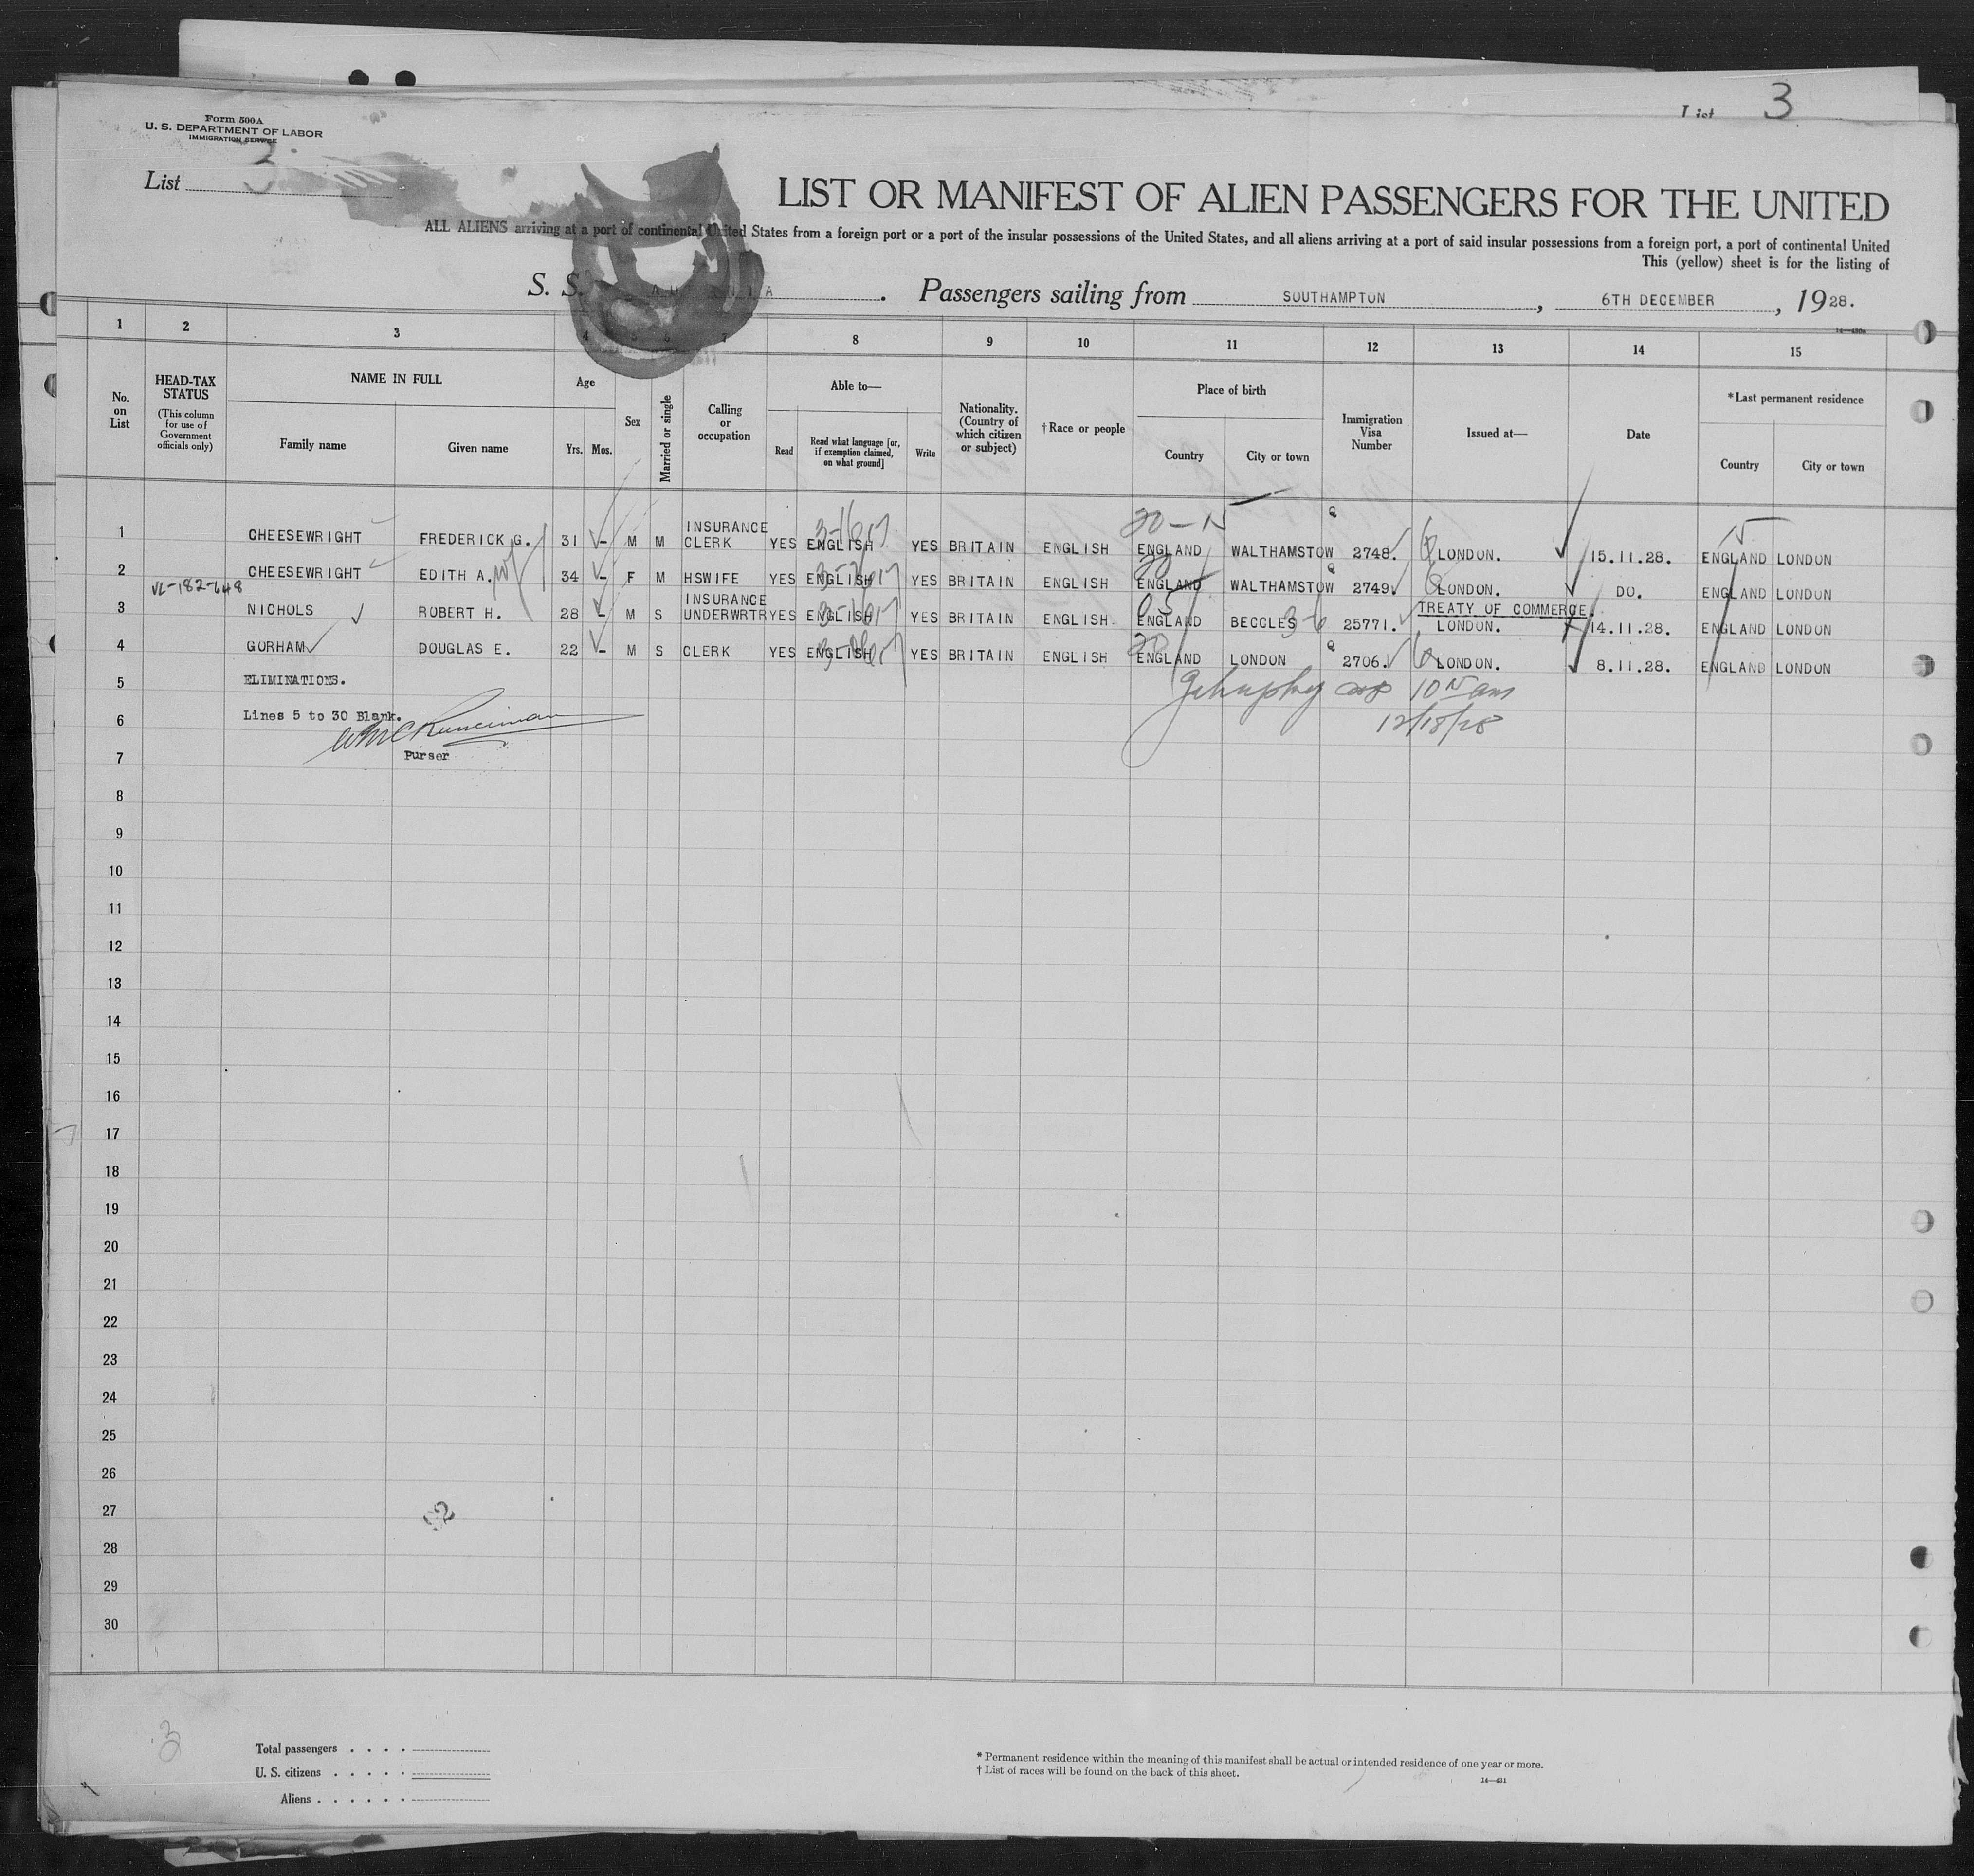 List 3
Form 500A
U. S. DEPARTMENT OF LABOR
IMMIGRATION SERVICE
List 3
LIST OR MANIFEST OF ALIEN PASSENGERS FOR THE UNITED
ALL ALIENS arriving at a port of continental United States from a foreign port or a port of the insular possessions of the United States, and all aliens arriving at a port of said insular possessions from a foreign port, a port of continental United
This (yellow) sheet is for the listing of
S. S. Passengers sailing from SOUTHAMPTON, 6TH DECEMBER, 1928.
1 2 3 4 5 6 7 8 9 10 11 12 13 14 15
No. on List
HEAD-TAX STATUS
(This column for use of Government officials only)
NAME IN FULL
Family name Given name
Age
Yrs. Mos.
Sex
Married or single
Calling or occupation
Able to—
Read
Read what language [or, if exemption claimed, on what ground]
Write
Nationality. (Country of which citizen or subject)
†Race or people
Place of birth
Country City or town
Immigration Visa Number
Issued at—
Date
*Last permanent residence
Country City or town
20-15
1 CHEESEWRIGHT FREDERICK G. 31 - M M INSURANCE CLERK YES ENGLISH YES BRITAIN ENGLISH ENGLAND WALTHAMSTOW Q 2748. LONDON. 15.11.28. ENGLAND LONDON
2 CHEESEWRIGHT EDITH A. 34 - F M HSWIFE YES ENGLISH YES BRITAIN ENGLISH ENGLAND WALTHAMSTOW Q 2749. LONDON. DO. ENGLAND LONDON
VL-182-648
3 NICHOLS ROBERT H. 28 - M S INSURANCE UNDERWRTR YES ENGLISH YES BRITAIN ENGLISH ENGLAND BECCLES 3-6 25771. TREATY OF COMMERCE. LONDON. 14.11.28. ENGLAND LONDON
4 GORHAM DOUGLAS E. 22 - M S CLERK YES ENGLISH YES BRITAIN ENGLISH 20 ENGLAND LONDON Q 2706. LONDON. 8.11.28. ENGLAND LONDON
5 ELIMINATIONS.
6 Lines 5 to 30 Blank.
12/18/28
7 Purser
8
9
10
11
12
13
14
15
16
17
18
19
20
21
22
23
24
25
26
27
28
29
30
3
Total passengers . . . .
U. S. citizens . . . . .
Aliens . . . . . .
* Permanent residence within the meaning of this manifest shall be actual or intended residence of one year or more.
† List of races will be found on the back of this sheet.
14—431